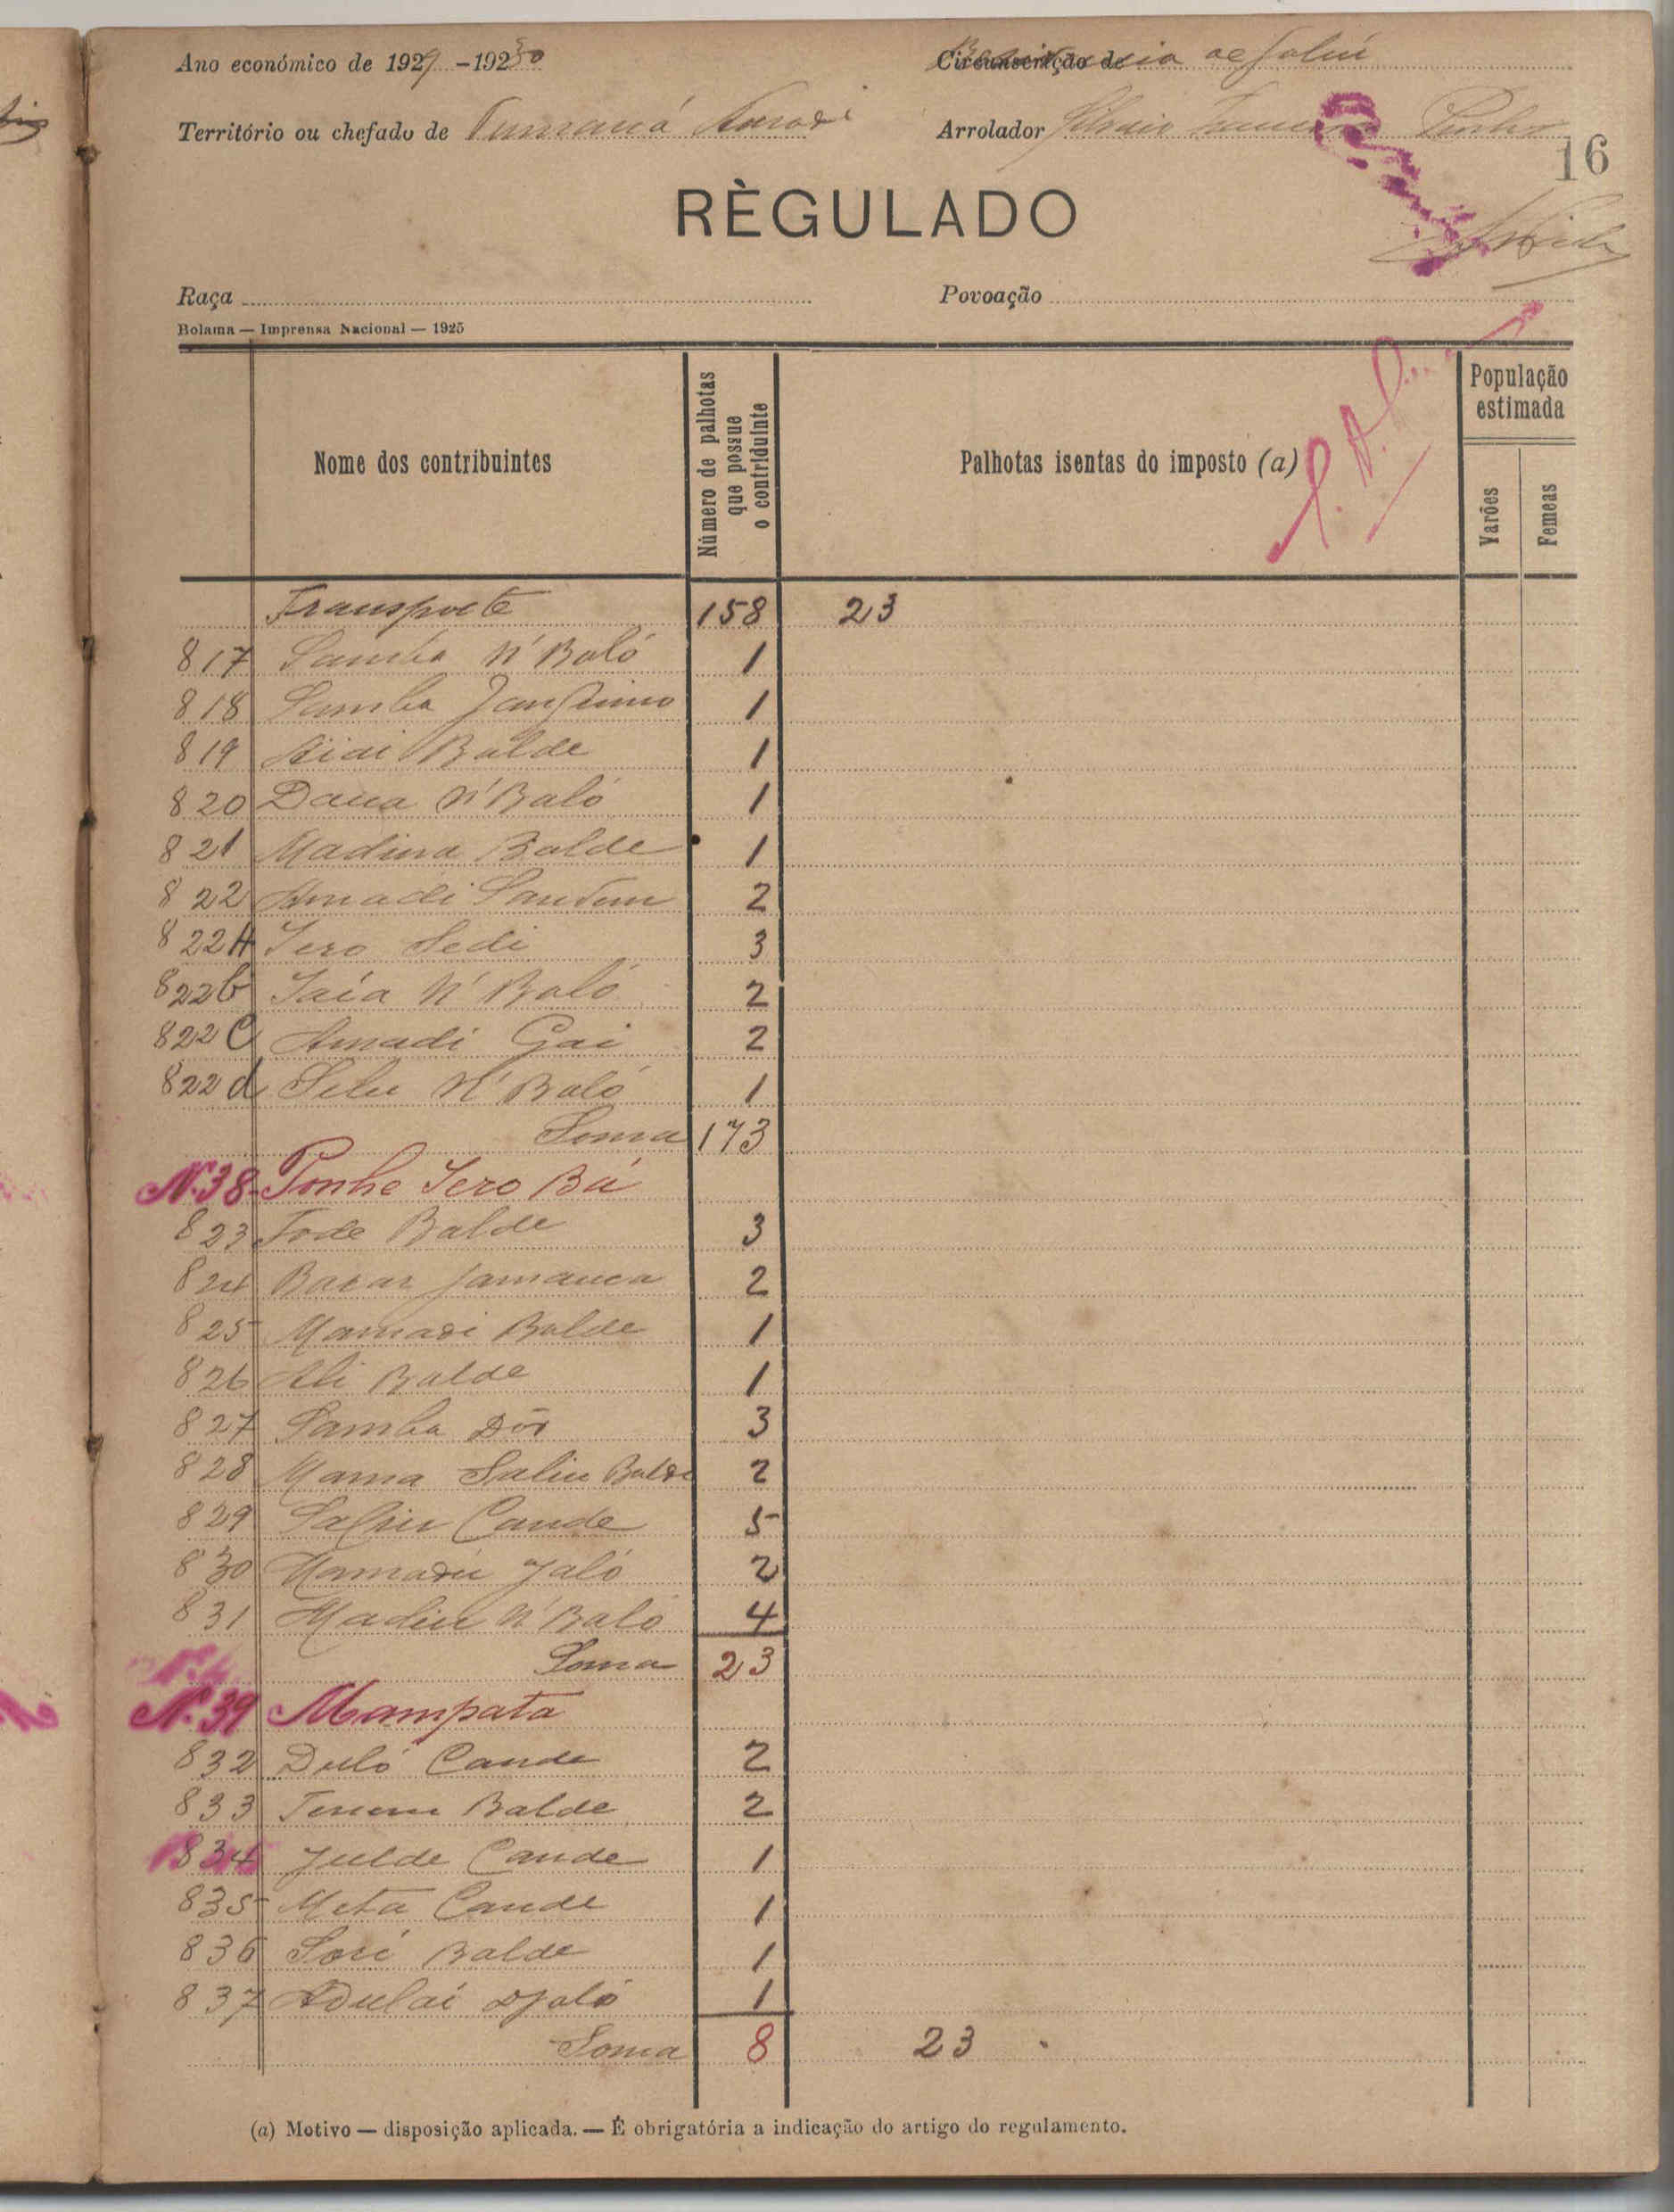 Ano económico de 1929 -1930
Circunscrição de
Território ou chefado de Tumaná
Arrolador Pinho
16
RÈGULADO
Raça
Povoação
Bolama — Imprensa Nacional — 1925
Nome dos contribuintes
Número de palhotas que possue o contriduinte
Palhotas isentas do imposto (a)
População estimada
Varões
Femeas
Transporte 158 23
817 Samba N'Baló 1
818 Samba 1
819 Balde 1
820 Daua N'Baló 1
821 Madina Balde 1
822 Amadi 2
822A Iero Sedi 3
822b Iaia N'Baló 2
822C Amadi Gai 2
822d Selu N'Baló 1
Soma 173
N.38 Ponhe Iero Bá
823 Fode Balde 3
824 Bacar Jamanca 2
825 Mamadi Balde 1
826 Ali Balde 1
827 Samba 3
828 Mama Saliu Balde 2
829 Saliu Cande 5
830 Mamadú Jaló 2
831 Madiu N'Baló 4
Soma 23
N.39 Mampata
832 Duló Cande 2
833 Balde 2
834 Julde Cande 1
835 Meta Cande 1
836 Sori Balde 1
837 Adulai Djaló 1
Soma 8 23
(a) Motivo — disposição aplicada. — É obrigatória a indicação do artigo do regulamento.